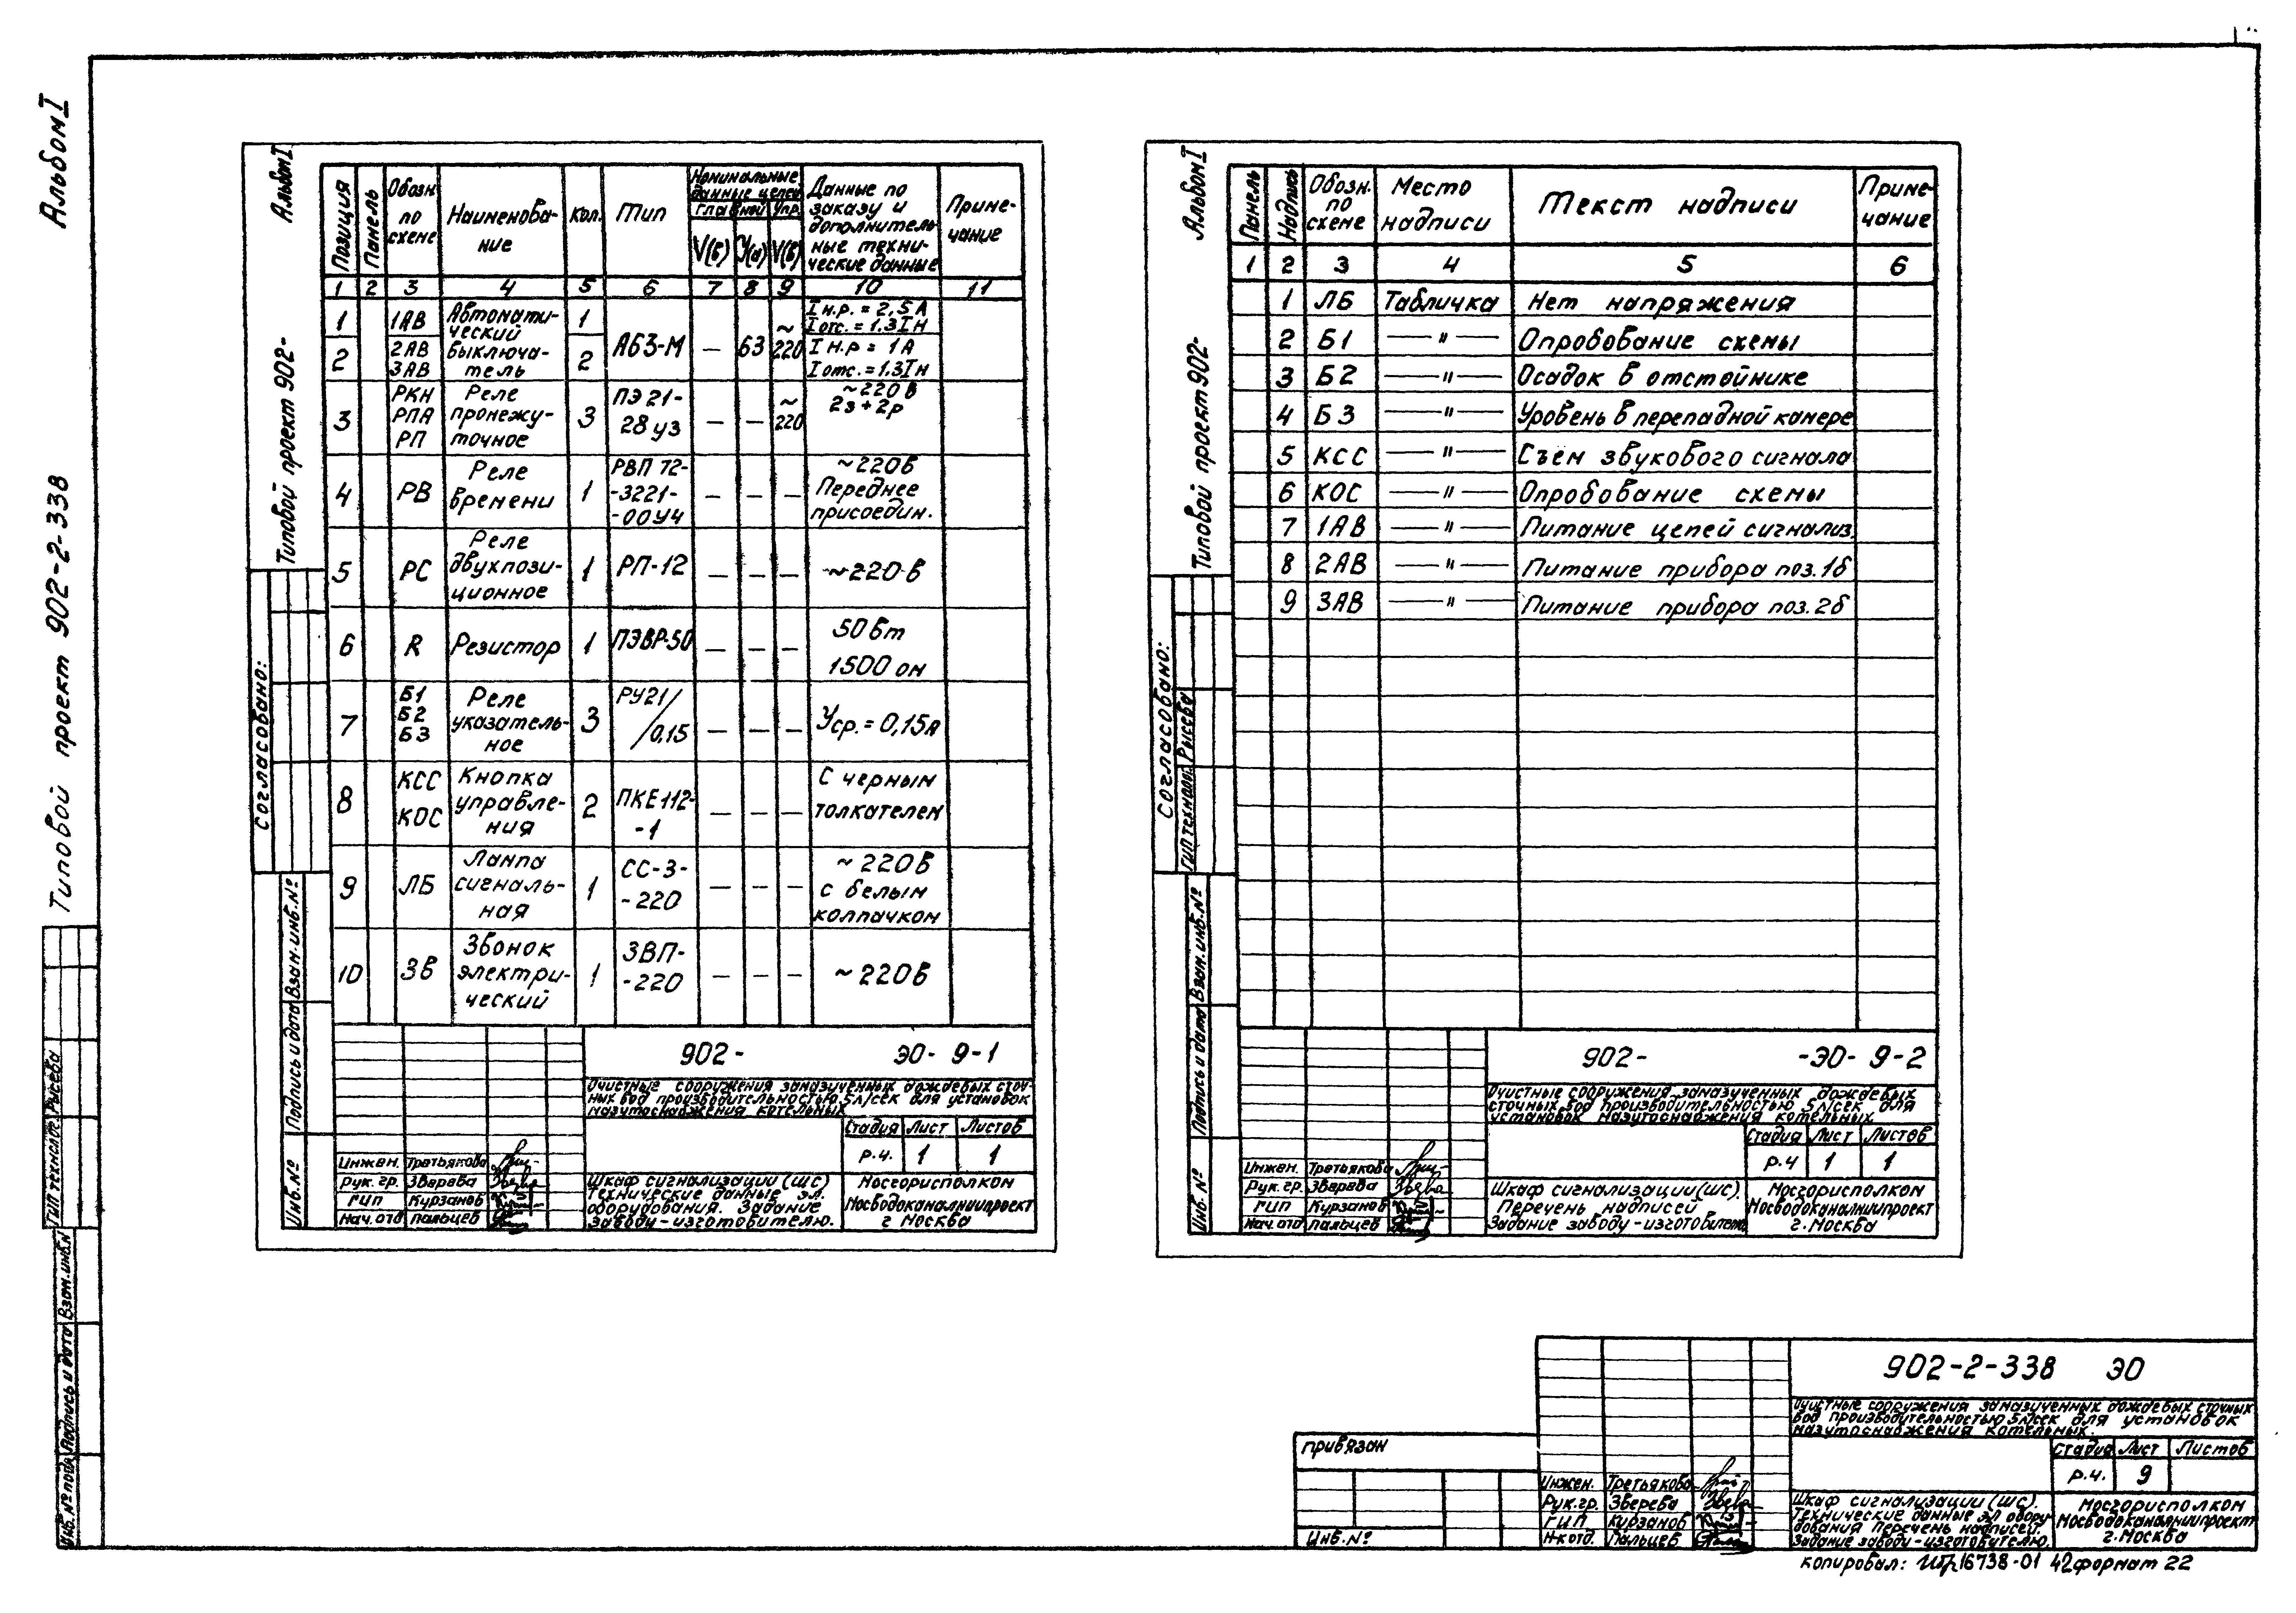 Альбом I
Типовой проект 902-2-338
ГИП технолог. Рысева
Взам. инв. №
Подпись и дата
Инв. № подл.
Альбом I
Типовой проект 902-
Согласовано:
Взам. инв. №
Подпись и дата
Инв. №
Позиция
Панель
Обозн. по схеме
Наименова-ние
Кол.
Тип
Номинальные данные цепей
главной
Упр.
V(в)
У(а)
V(в)
Данные по заказу и дополнитель-ные техни-ческие данные
Приме-чание
1 2 3 4 5 6 7 8 9 10 11
1 1АВ Автомати-ческий выключа-тель 1 А63-М — 63 ~220 Iн.р. = 2,5А Iотс. = 1,3Iн
2 2АВ 3АВ 2 Iн.р = 1А Iотс. = 1,3Iн
3 РКН РПА РП Реле промежу-точное 3 ПЭ21-28у3 — — ~220 ~220в 2з+2р
4 РВ Реле времени 1 РВП 72-3221-00У4 — — — ~220в Переднее присоедин.
5 РС Реле двухпози-ционное 1 РП-12 — — — ~220в
6 R Резистор 1 ПЭВР-50 — — — 50вт 1500 ом
7 Б1 Б2 Б3 Реле указатель-ное 3 РУ21/0,15 — — — Уср. = 0,15А
8 КСС КОС Кнопка управле-ния 2 ПКЕ 112-1 — — — С черным толкателем
9 ЛБ Лампа сигналь-ная 1 СС-3-220 — — — ~220в с белым колпачком
10 Зв Звонок электри-ческий 1 ЗВП-220 — — — ~220в
902- ЭО- 9-1
Очистные сооружения замазученных дождевых сточ-
ных вод производительностью 5л/сек для установок
мазутоснабжения котельных
Стадия Лист Листов
р.ч. 1 1
Инжен. Третьякова
Рук. гр. Зверева
ГИП Курзанов
Нач. отд Пальцев
Шкаф сигнализации (ШС)
Технические данные эл.
оборудования. Задание
заводу-изготовителю.
Мосгорисполком
Мосводоканалниипроект
г Москва
Альбом I
Типовой проект 902-
Согласовано:
ГИП технол. Рысева
Взам. инв. №
Подпись и дата
Инв. №
Панель
Надпись
Обозн. по схеме
Место надписи
Текст надписи
Приме-чание
1 2 3 4 5 6
1 ЛБ Табличка Нет напряжения
2 Б1 —"— Опробование схемы
3 Б2 —"— Осадок в отстойнике
4 Б3 —"— Уровень в перепадной камере
5 КСС —"— Съем звукового сигнала
6 КОС —"— Опробование схемы
7 1АВ —"— Питание цепей сигнализ.
8 2АВ —"— Питание прибора поз. 1б
9 3АВ —"— Питание прибора поз. 2б
902- -ЭО- 9-2
Очистные сооружения замазученных дождевых
сточных вод производительностью 5л/сек для
установок мазутоснабжения котельных
Стадия Лист Листов
р.ч 1 1
Инжен. Третьякова
Рук. гр. Зверева
ГИП Курзанов
Нач. отд Пальцев
Шкаф сигнализации (ШС).
Перечень надписей
Задание заводу-изготовителю
Мосгорисполком
Мосводоканалниипроект
г. Москва
привязан
Инв. №
902-2-338 ЭО
Очистные сооружения замазученных дождевых сточных
вод производительностью 5л/сек для установок
мазутоснабжения котельных.
Стадия Лист Листов
р.ч. 9
Инжен. Третьякова
Рук. гр. Зверева
ГИП Курзанов
Н-к отд. Пальцев
Шкаф сигнализации (ШС).
Технические данные эл обору-
дования Перечень надписей.
Задание заводу-изготовителю.
Мосгорисполком
Мосводоканалниипроект
г. Москва
копировал: 16738-01 42 формат 22